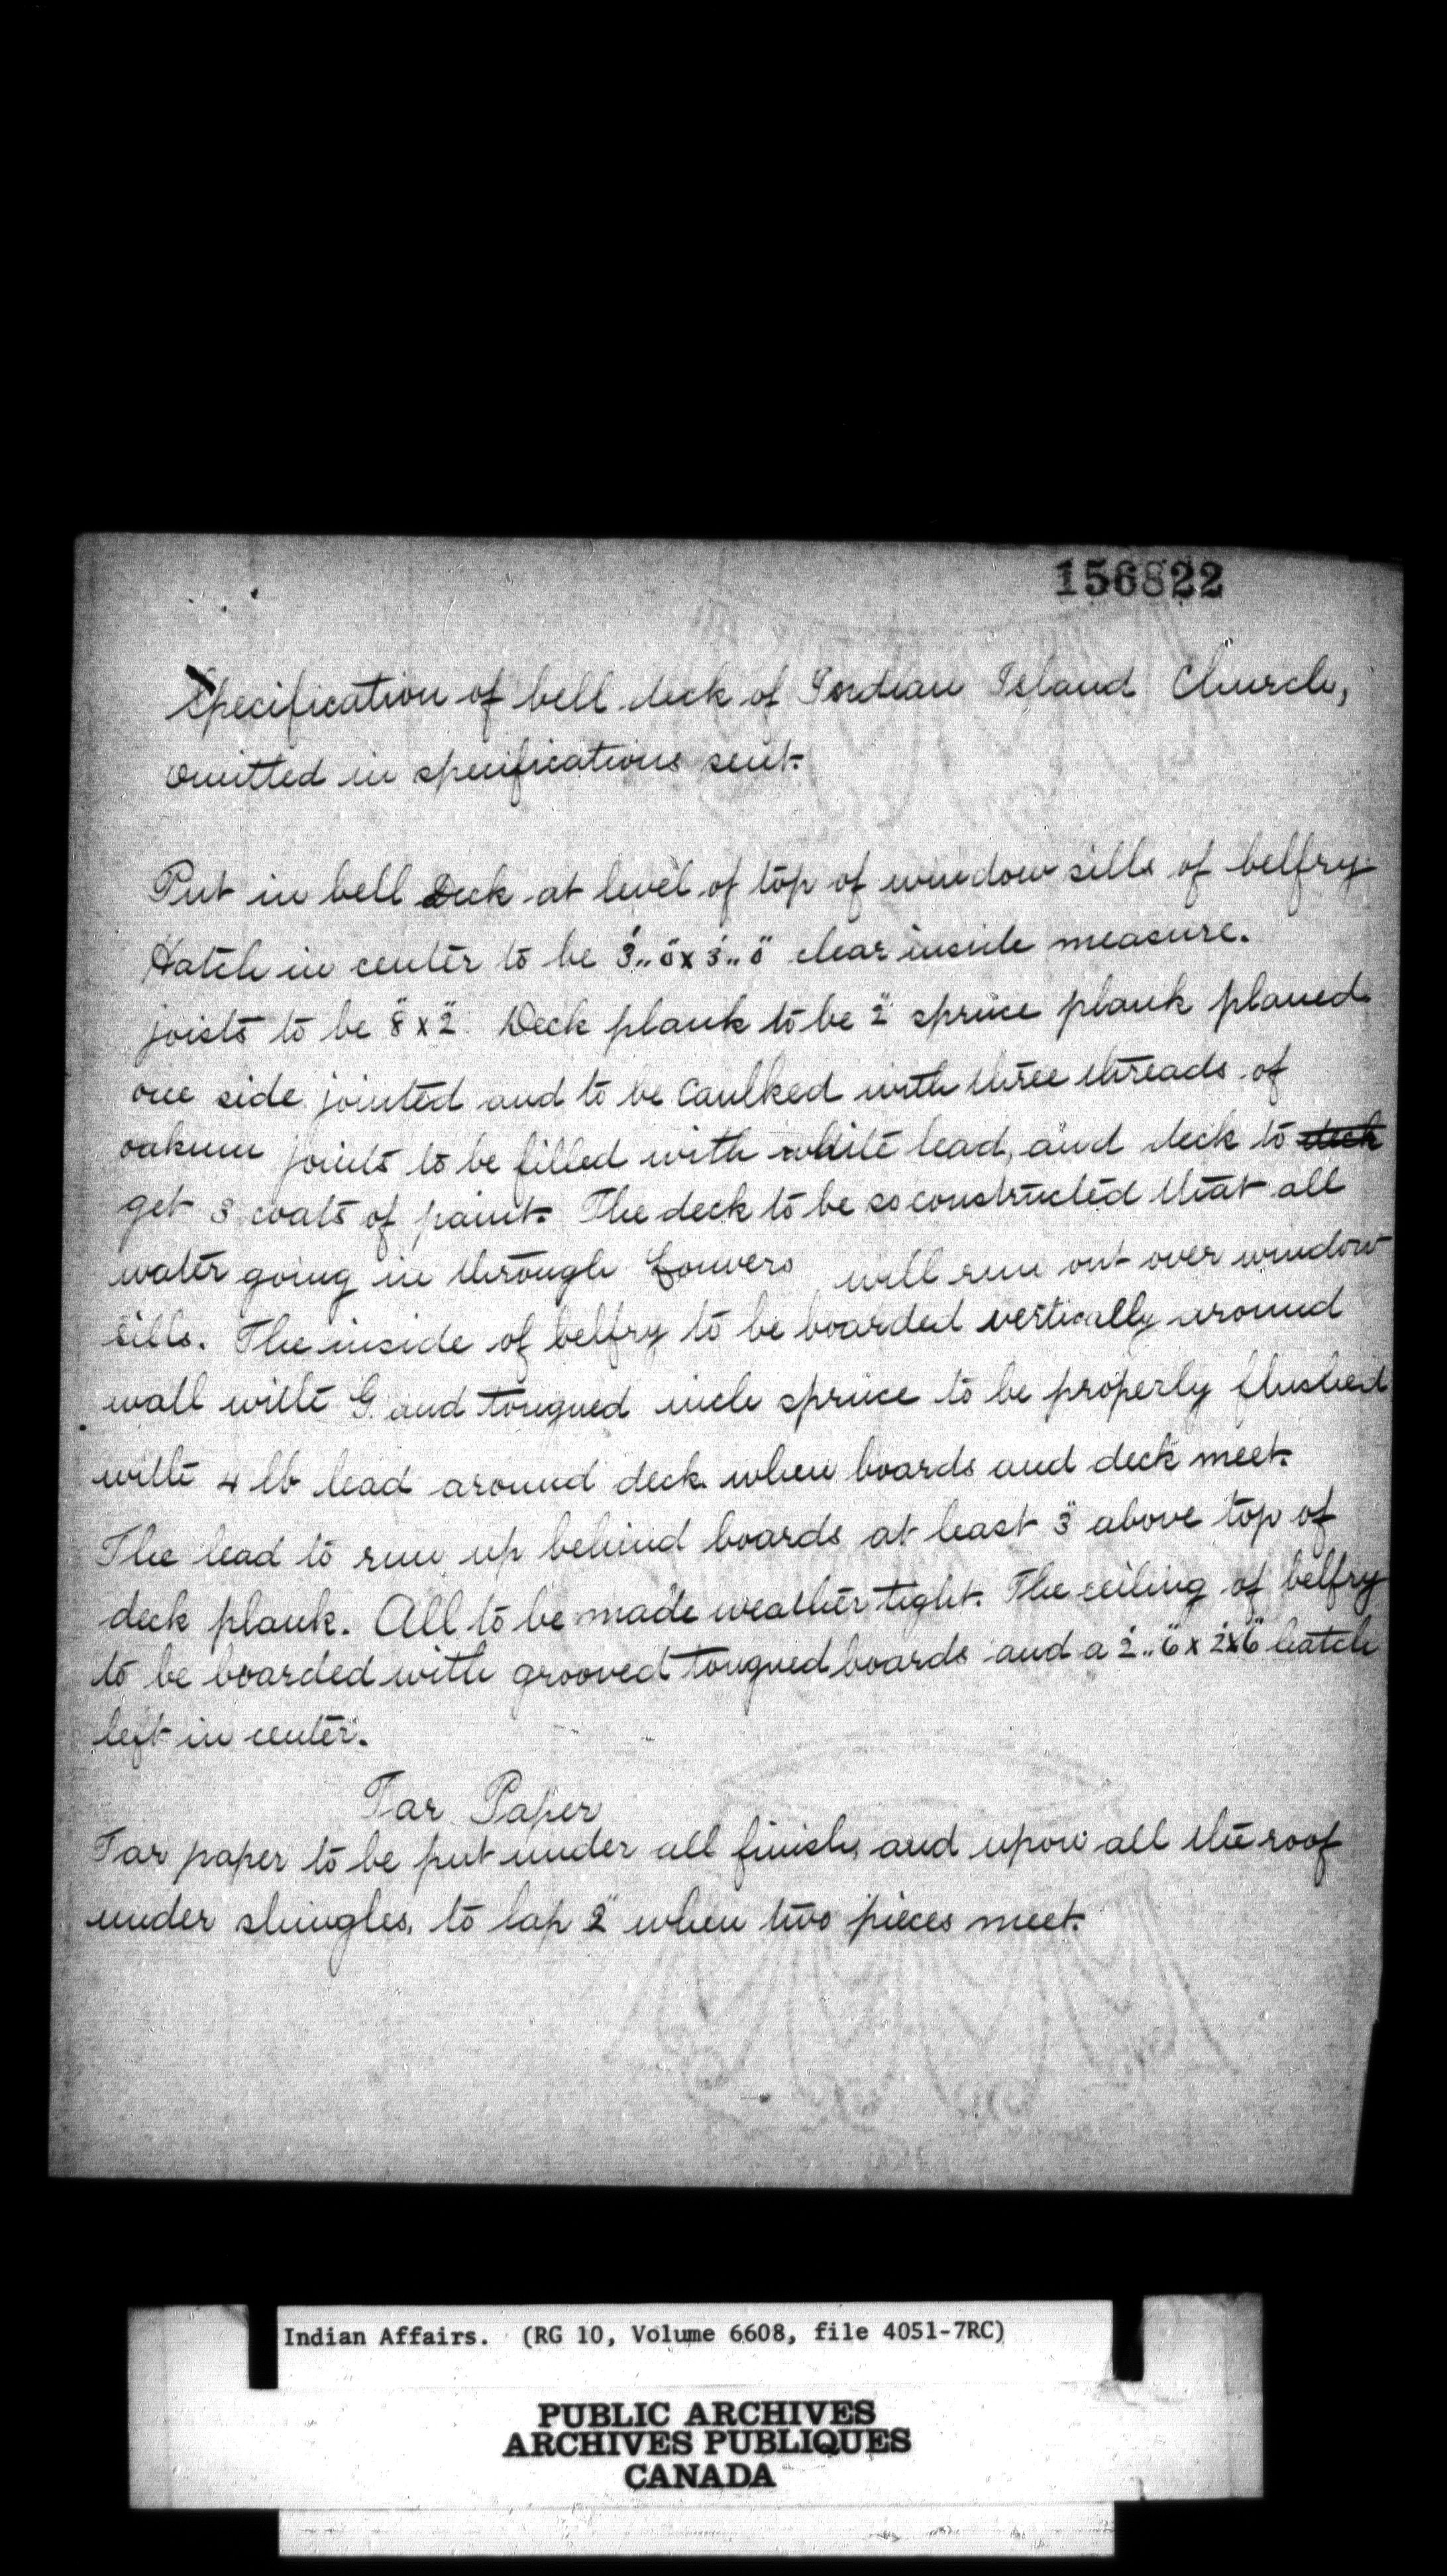 156822
Specification of bell deck of Indian Island Church,
omitted in specifications sent.
Put in bell Deck at level of top of window sills of belfry.
Hatch in center to be 3'..0" x 3'..0" clear inside measure.
joists to be 8" x 2". Deck plank to be 2" spruce plank planed
one side jointed and to be caulked with three threads of
oakum joints to be filled with white lead, and deck to deck
get 3 coats of paint. The deck to be so constructed that all
water going in through Louvers will run out over window
sills. The inside of belfry to be boarded vertically around
wall with G. and tongued inch spruce to be properly flushed
with 4 lb lead around deck when boards and deck meet.
The lead to run up behind boards at least 3" above top of
deck plank. All to be made weather tight. The ceiling of belfry
to be boarded with grooved tongued boards and a 2'..6" x 2'x6" hatch
left in center.
Tar Paper
Tar paper to be put under all finish, and upon all the roof
under shingles, to lap 2" when two pieces meet.
Indian Affairs. (RG 10, Volume 6608, file 4051-7RC)
PUBLIC ARCHIVES
ARCHIVES PUBLIQUES
CANADA